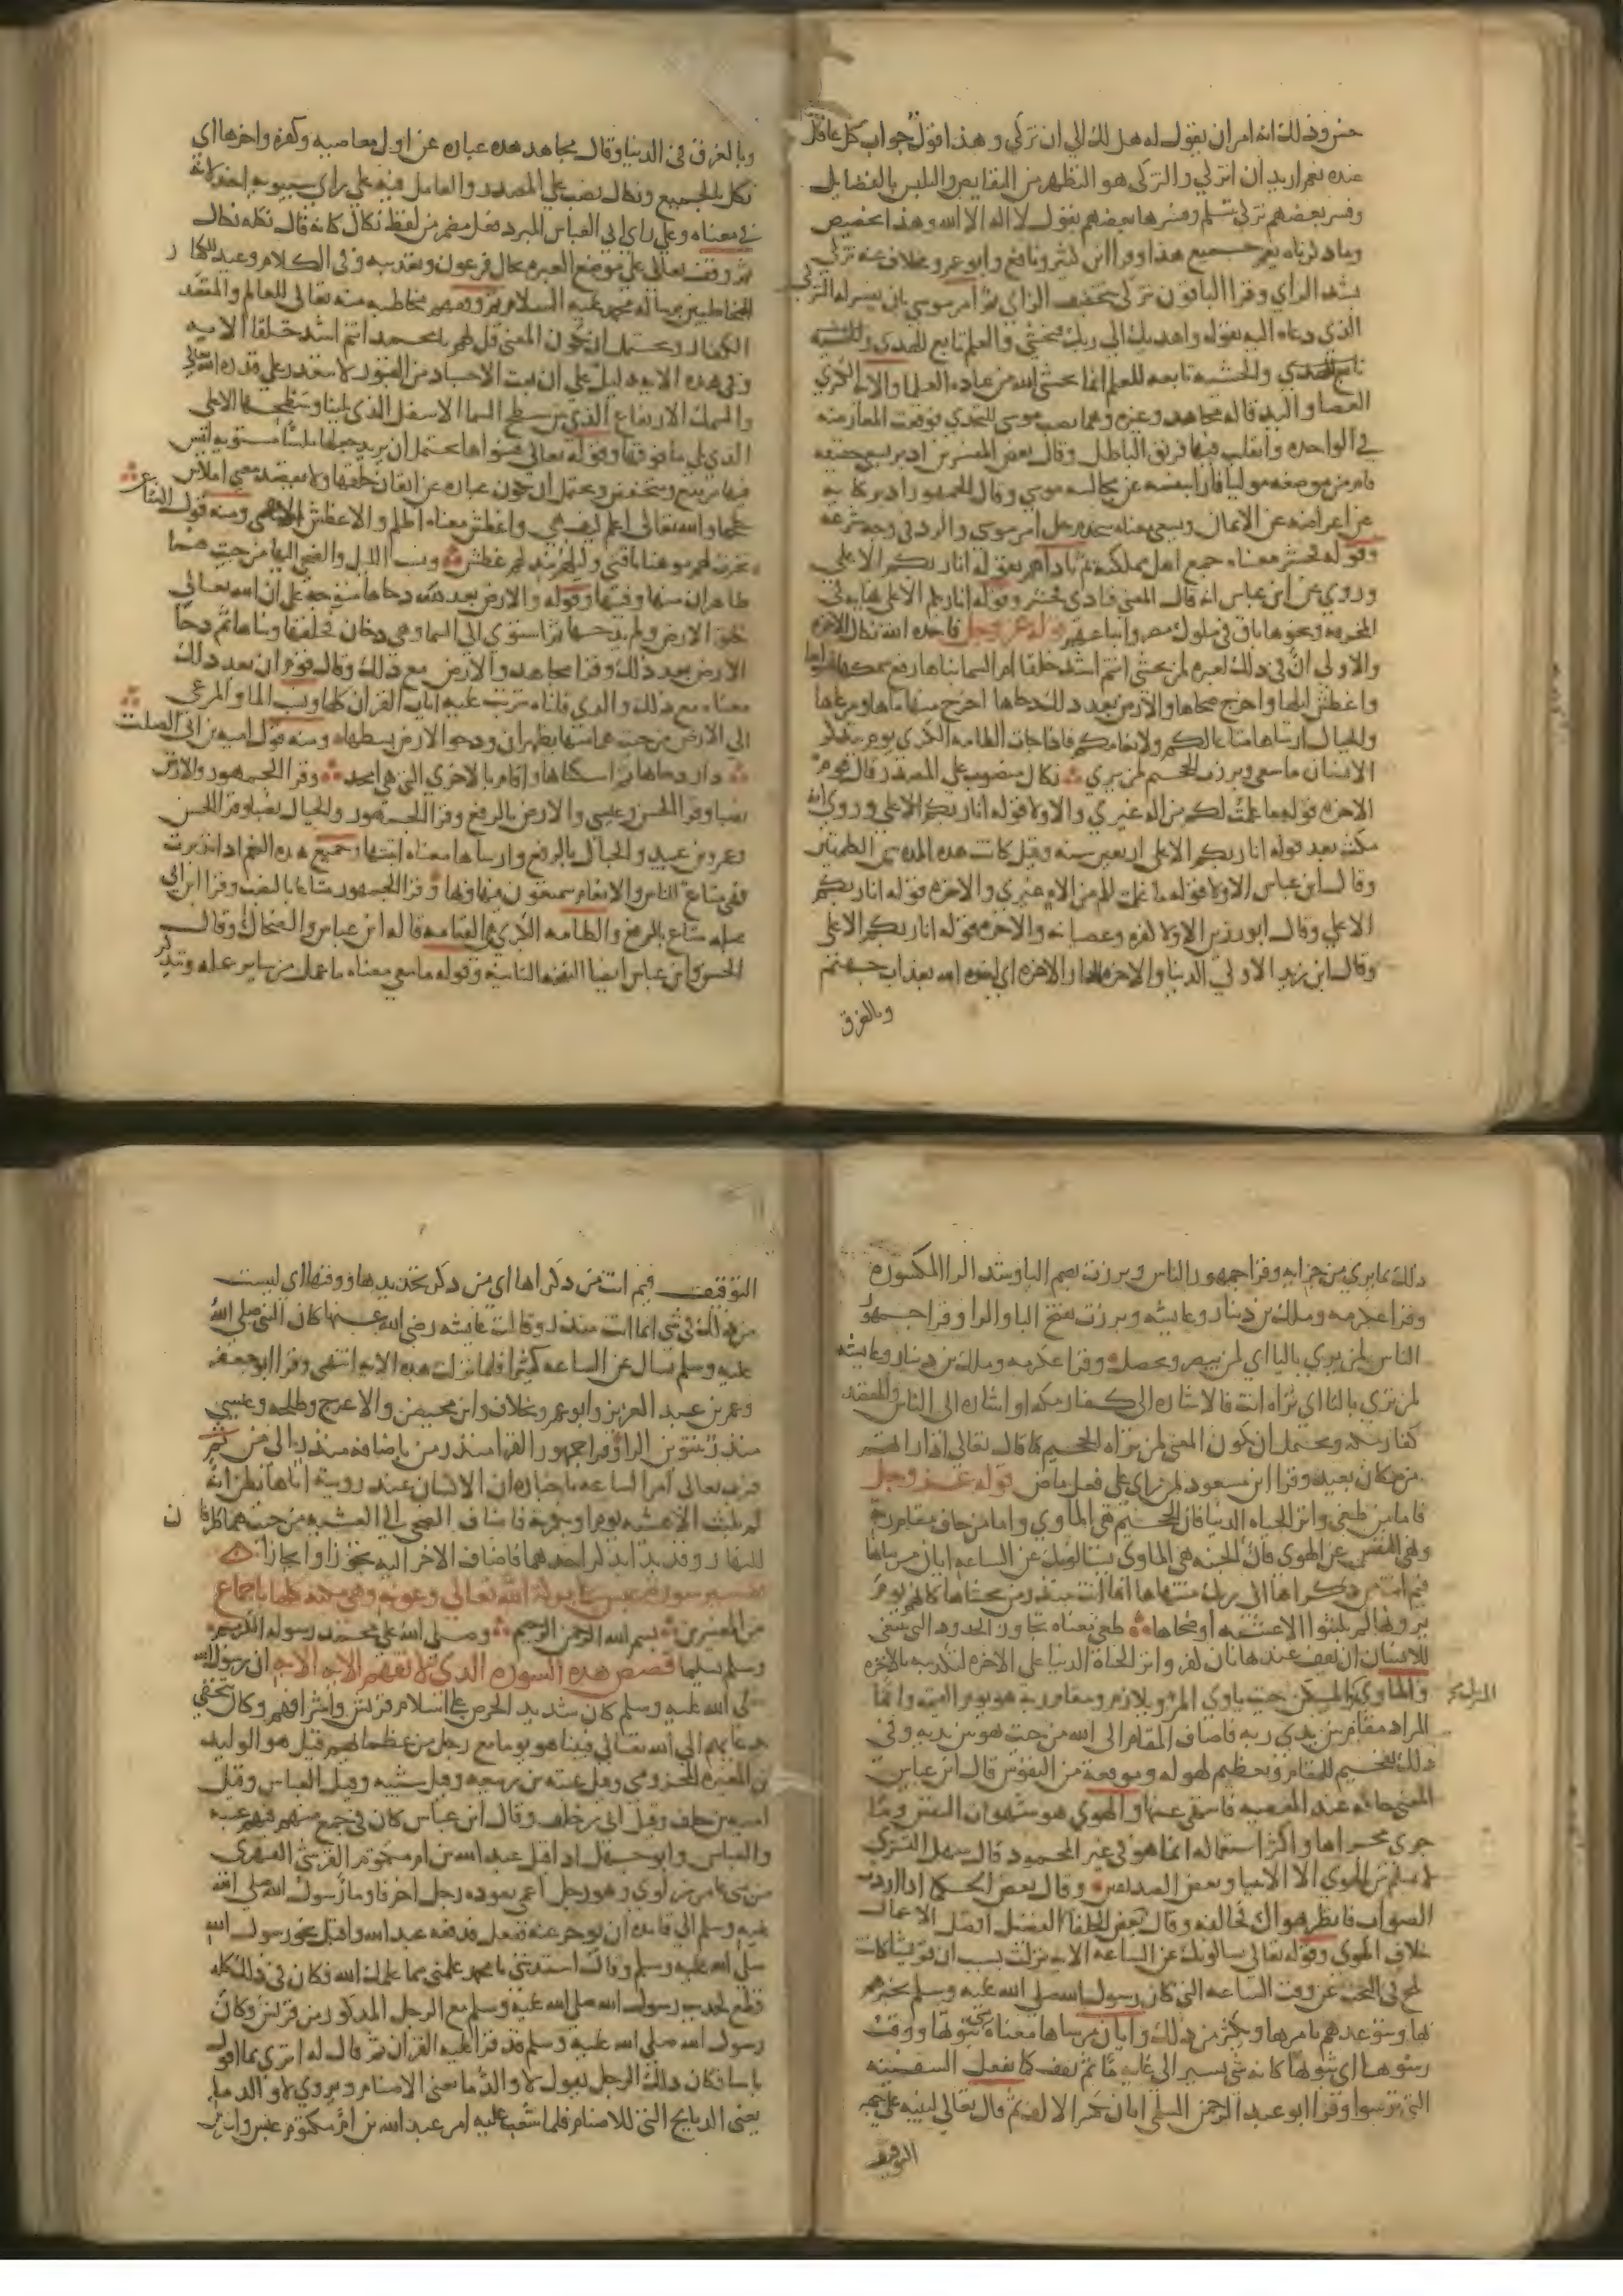 حسن وذلك انه امر ان يقول له هل لك الي ان تزكي و هذا قول جواب كل عاقل
عنده نعم اريد ان اتزكي والتزكي هو التطهر من النقايص والتلبس بالفضايل
وفسر بعضهم تزكي بتسلم وفسرها بعضهم بقول لا اله الا الله وهذا تخصيص
وما ذكرناه يعم جميع هذا وقرا ابن كثير ونافع وابو عمرو بخلاف عنه تزكي
بشد الزاي وقرا الباقون تزكي بتخفيف الزاي ثم امر موسي بان يفسر له التزكي
الذي دعاه اليه بقوله واهديك الي ربك فتخشي والعلم تابع للهدي والخشية
تابع للهدي والخشيه تابعه للعلم انما يخشي الله من عباده العلما والايه الكبري
العصا و اليد قاله مجاهد وغيره وهما نصب موسي للتحدي فوقعت المعارضه
في الواحده وانغلب فيها فريق الباطل وقال بعض المفسرين ادبر يسعي حقيقه
قام من موضعه موليا فارا بنفسه عن مجالسه موسي وقال الجمهور ادبر كنايه
عن اعراضه عن الايمان ويسعي معناه يجتهد حل امر موسي والرد في وجه شرعه
وقوله فحشر معناه جمع اهل مملكته ثم ناداهم بقوله انا ربكم الاعلي
وروي عن ابن عباس انه قال المعني فنادي فحشر وقوله انا ربكم الاعلي نهايه في
المخرقه ونحوها باق في ملوك مصر واتباعهم قوله عز وجل فاخذه الله نكال الاخره
والاولي ان في ذلك لعبره لمن يخشي اانتم اشد خلقا ام السما بناها رفع سمكها فسواها
واغطش ليلها واخرج ضحاها والارض بعد ذلك دحاها اخرج منها ماها ومرعاها
والجبال ارساها متاعا لكم ولانعامكم فاذا جات الطامه الكبري يوم يتذكر
الانسان ما سعي وبرزت الجحيم لمن يري نكال منصوب علي المصدر قال قوم
الاخره قوله ما علمت لكم من اله غيري والاولي قوله انا ربكم الاعلي وروي انه
مكث بعد قوله انا ربكم الاعلي اربعين سنه وقيل كانت هذه المده بين الكلمتين
وقال ابن عباس الاولي قوله ما علمت لكم من اله غيري والاخره قوله انا ربكم
الاعلي وقال ابو رزين الاولي كفره وعصيانه والاخره قوله انا ربكم الاعلي
وقال ابن زيد الاولي الدنيا والاخره الدار الاخره اي اخذه الله بعذاب جهنم
وبالغرق
وبالغرق في الدنيا وقال مجاهد هذه عباره عن اول معاصيه وكفره واخرها اي
نكل بالجميع ونكال نصب علي المصدر والعامل فيه علي راي سيبويه اخذ لانه
في معناه وعلي راي ابي العباس المبرد فعل مضمر من لفظ نكال كانه قال نكله نكال
ثم وقف تعالي علي موضع العبره بحال فرعون وتعذيبه وفي الكلام وعيد للكفار
المخاطبين برسالة محمد عليه السلام ثم وقفهم مخاطبه منه تعالي للعالم والمقصد
الكفار ويحتمل ان يكون المعني قل لهم يا محمد اانتم اشد خلقا الايه
وفي هذه الايه دليل علي ان بعث الاجساد من القبور لا يتعذر علي قدره الله تعالي
والسمك الارتفاع الذي بين سطح السما الاسفل الذي يلينا وسطحها الاعلي
الذي يلي ما فوقها وقوله تعالي فسواها يحتمل ان يريد جعلها ملسا مستويه ليس
فيها مرتفع ومنخفض ويحتمل ان يكون عباره عن اتقان خلقها ولا يقصد معني املاس
سطحها والله تعالي اعلم كيف هي واغطش معناه اظلم والاغطش الاعمي ومنه قول الشاعر
نحرت لهم موهنا ناقتي وليلهم مدلهم غطش ونسب الليل والضحي اليها من حيث هما
ظاهران منها وفيها وقوله والارض بعد ذلك دحاها متوجه علي ان الله تعالي
خلق الارض ولم يدحها ثم استوي الي السما وهي دخان فخلقها وبناها ثم دحا
الارض بعد ذلك وقرا مجاهد والارض مع ذلك وقال قوم ان بعد ذلك
معناه مع ذلك والذي قلناه تترتب عليه ايات القران كلها ونسب الما والمرعي
الي الارض من حيث هما منها يظهران ودحو الارض بسطها ومنه قول اميه بن ابي الصلت
دار دحاها ثم اسكنا ها واقام بالاخري التي هي امجد وقرا الجمهور والارض
نصبا وقرا الحسن وعيسي والارض بالرفع وقرا الجمهور والجبال نصبا وقرا الحسن
وعمرو بن عبيد والجبال بالرفع وارساها معناه اثبتها وجميع هذه النعم اذا تدبرت
فهي متاع للناس والانعام يتمتعون بها وفيها وقرا الجمهور متاعا بالنصب وقرا ابن ابي
عبله متاع بالرفع والطامه الكبري هي القيامه قاله ابن عباس والضحاك وقال
الحسن وابن عباس ايضا النفخه الثانيه وقوله ما سعي معناه ما عمل من ساير عمله ويتذكر
ذلك بما يري من جزايه وقرا جمهور الناس وبرزت بضم البا وشد الرا المكسوره
وقرا عكرمه وملك بن دينار وعايشه وبرزت بفتح البا والرا وقرا جمهور
الناس لمن يري باليا اي لمن يبصر ويحصل وقرا عكرمه وملك بن دينار وعايشه
لمن تري بالتا اي تراه انت فالاشاره الي كفار مكه او اشاره الي الناس والمقصد
كفار مكه ويحتمل ان يكون المعني لمن تراه الجحيم كما قال تعالي اذا راتهم
من مكان بعيد وقرا ابن مسعود لمن راي علي فعل ماض قوله عز وجل
فاما من طغي واثر الحياه الدنيا فان الجحيم هي الماوي واما من خاف مقام ربه
ونهي النفس عن الهوي فان الجنه هي الماوي يسالونك عن الساعه ايان مرساها
فيم انت من ذكراها الي ربك منتهاها انما انت منذر من يخشاها كانهم يوم
يرونها لم يلبثوا الا عشيه او ضحاها طغي معناه تجاوز الحدود التي ينبغي
للانسان ان يقف عندها بان كفر واثر الحياة الدنيا علي الاخره لتكذيبه بالاخره
والماوي المسكن حيث ياوي المرو ويلازم ومقام ربه هو يوم القيمه وانما
المنزل
المراد مقام بين يدي ربه فاضاف المقام الي الله من حيث هو بين يديه وفي
ذلك تفخيم للمقام وتعظيم لهوله وموقعه من النفوس قال ابن عباس
المعني خافه عند المعصيه فانتهي عنها والهوي هو شهوات النفس وما
جري مجراها واكثر استعماله انما هو في غير المحمود قال سهل التستري
لا يسلم من الهوي الا الانبيا وبعض الصديقين وقال بعض الحكما اذا اردت
الصواب فانظر هواك فخالفه وقال بعض الحكما الفضل افضل الاعمال
خلاف الهوي وقوله تعالي يسالونك عن الساعه الايه نزلت بسبب ان قريشا كانت
تلح في البحث عن وقت الساعه التي كان رسول الله صلي الله عليه وسلم يخبرهم
بها ويتوعدهم بامرها ويكثر من ذلك وايان مرساها معناه متي ثبوتها ووقت
رسوها اي ثبوتها كانه شي يسير الي غايه ما ثم يقف كما تفعل السفينه
التي ترسوا وقرا ابو عبد الرحمن السلمي ايان بكسر الالف ثم قال تعالي لنبيه علي جهه
التوقيف
التوقيف فيم انت من ذكراها اي من ذكر تحديدها ووقتها اي لست
من ذلك في شي انما انت منذر وقالت عايشه رضي الله عنها كان النبي صلي الله
عليه وسلم يسال عن الساعه كثيرا فلما نزلت هذه الايه انتهي وقرا ابو جعفر
وعمر بن عبد العزيز وابو عمرو بخلاف وابن محيصن والاعرج وطلحه وعيسي
منذر بتنوين الرا وقرا جمهور القرا منذر من باضافه منذر الي من ثم
قرب تعالي امر الساعه باخباره ان الانسان عند رويته اياها يظن انه
لم يلبث الا عشيه يوم او بكرته فاضاف الضحي الي العشيه من حيث هما طرفان
للنهار وقد بدا بذكر احدهما فاضاف الاخر اليه تجوزا وايجازا
تفسير سورة عبس بحول الله تعالي وعونه وهي مكيه كلها باجماع
من المفسرين بسم الله الرحمن الرحيم وصلي الله علي محمد رسوله الكريم
وسلم تسليما قصص هذه السوره الذي لا تفهم الايه الا به ان رسول الله
صلي الله عليه وسلم كان شديد الحرص علي اسلام قريش واشرافهم وكان يتحفي
بدعايهم الي الله تعالي فبينا هو يوما مع رجل من عظمايهم قيل هو الوليد
بن المغيره المخزومي وقيل عتبه بن ربيعه وقيل شيبه وقيل العباس وقيل
اميه بن خلف وقيل ابي بن خلف وقال ابن عباس كان في جمع منهم فيهم عتبه
والعباس وابو جهل اذ اقبل عبد الله بن ام مكتوم القرشي الفهري
من بني عامر بن لوي وهو رجل اعمي يقوده رجل اخر فاوما رسول الله صلي الله
عليه وسلم الي قايده ان يوخره عنه ففعل فدفعه عبد الله واقبل نحو رسول الله
صلي الله عليه وسلم وقال استدنني يا محمد علمني مما علمك الله فكان في ذلك كله
قطع لحديث رسول الله صلي الله عليه وسلم مع الرجل المذكور من قريش وكان
رسول الله صلي الله عليه وسلم قد قرا عليه القران ثم قال له اتري بما اقول
باسا فكان ذلك الرجل يقول لا والدما يعني الاصنام ويروي لا والدما
يعني الذبايح التي للاصنام فلما شغب عليه امر عبد الله بن ام مكتوم عبس واعرض